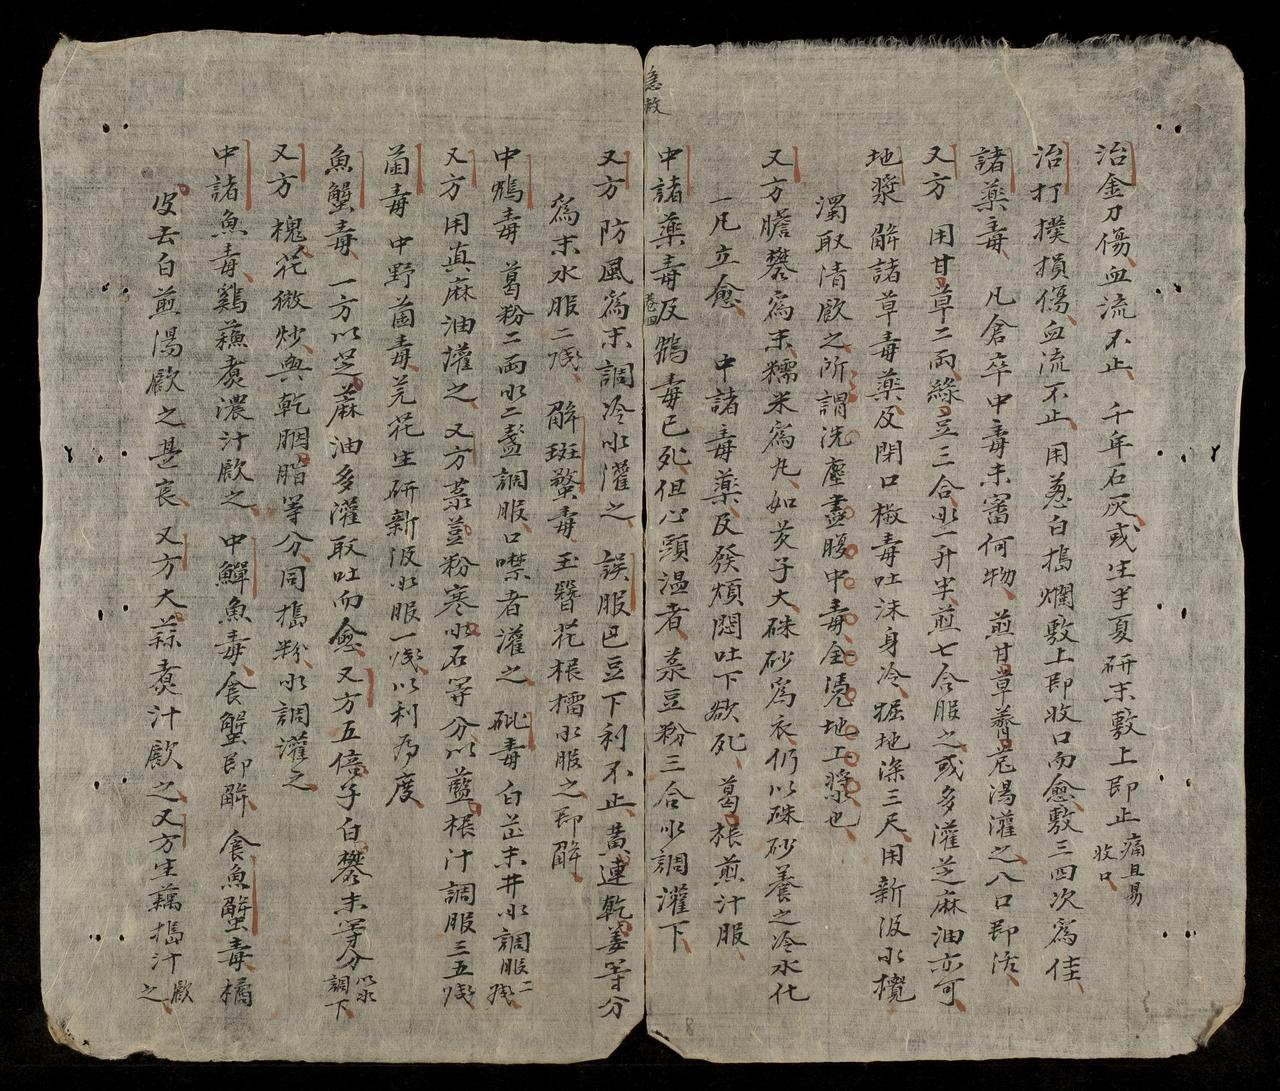 治金刀傷血流不止 千年石灰或生半夏研末敷上即止痛且易收口
治打撲損傷血流不止 用葱白搗爛敷上即收口而愈敷三四次為佳
諸藥毒 凡倉卒中毒未審何物 煎甘草薺苨湯灌之入口即活
又方 用甘草二兩綠豆三合水一升半煎七合服之或多灌芝麻油亦可
地漿 解諸草毒藥及閉口椒毒吐沫身冷掘地深三尺用新汲水攪
濁取清飲之所謂洗塵盡腹中毒全憑地工漿也
又方膽礬為末糯米為丸如芡子大硃砂為衣仍以硃砂養之冷水化
一凡立愈 中諸毒藥及發煩悶吐下欲死 葛根煎汁服
中諸藥毒及鴆毒已死但心頭溫者 菉豆粉三合水調灌下
急救
卷四
又方 防風為末調冷水灌之 誤服巴豆下利不止黃連乾姜等分
為末水服二戔 解斑蝥毒 玉簪花根擂水服之即解
中鴆毒 葛粉二兩水二盞調服口噤者灌之 砒毒 白芷末井水調服二戔
又方 用真麻油灌之 又方菉荳粉寒水石等分以藍根汁調服三五戔
菌毒 中野菌毒芫花生研新汲水服一戔以利為度
魚蟹毒 一方以芝蔴油多灌取吐而愈 又方五倍子白礬末等分以水調下
又方 槐花微炒與乾胭脂等分同搗粉水調灌之
中諸魚毒雞蘓煮濃汁飲之 中鱓魚毒食蟹即解 食魚蟹毒橘
皮去白煎湯飲之甚良 又方大蒜煮汁飲之又方生藕搗汁飲之